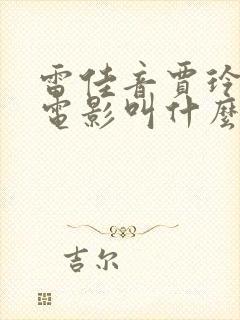 雷佳音賈玲
電影叫什麼
吉尔